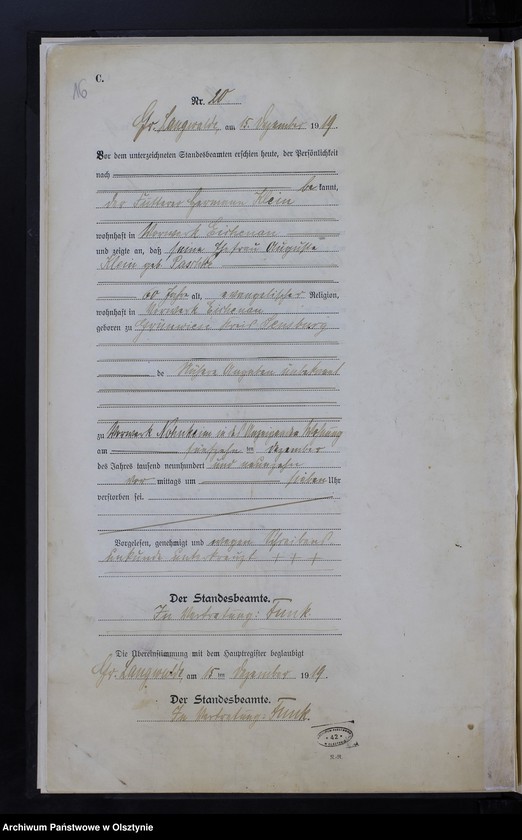 C.
16
Nr. 20
Gr. Langwalde, am 15. Dezember 1919.
Vor dem unterzeichneten Standesbeamten erschien heute, der Persönlichkeit
nach
be kannt,
der Fütterer Hermann Klein
wohnhaft in Vorwerk Birkenau
und zeigte an, daß seine Ehefrau Auguste
Klein geb
60 Jahre alt, evangelischer Religion,
wohnhaft in Vorwerk Birkenau
geboren zu Grünwiese Kreis
de Nähere Angaben unbekannt
zu Vorwerk in des Wohnung
am fünfzehn ten Dezember
des Jahres tausend neunhundert und neunzehn
vor mittags um sieben Uhr
verstorben sei.
Vorgelesen, genehmigt und wegen Schreibens
unkunde unterkreuzt + + +
Der Standesbeamte.
In Vertretung: Funk.
Die Übereinstimmung mit dem Hauptregister beglaubigt
Gr. Langwalde, am 15 ten Dezember 1919.
Der Standesbeamte.
In Vertretung: Funk.
42
Archiwum Państwowe w Olsztynie